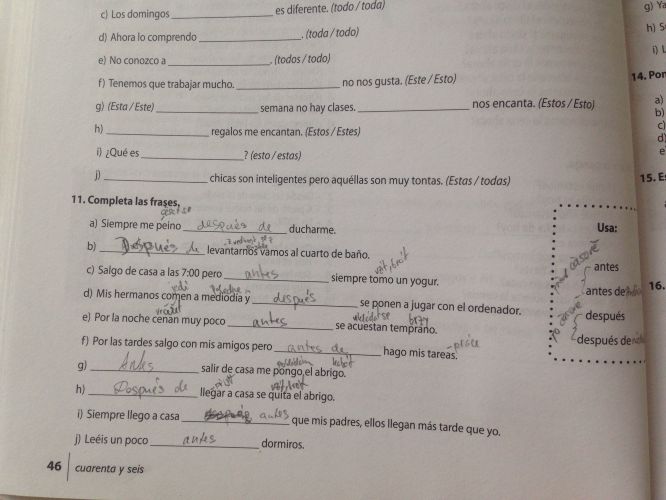 c) Los domingos ____________ es diferente. (todo / toda)
d) Ahora lo comprendo ____________. (toda / todo)
e) No conozco a ____________. (todos / todo)
f) Tenemos que trabajar mucho. ____________ no nos gusta. (Este / Esto)
g) (Esta / Este) ____________ semana no hay clases. ____________ nos encanta. (Estos / Esto)
h) ____________ regalos me encantan. (Estos / Estes)
i) ¿Qué es ____________? (esto / estas)
j) ____________ chicas son inteligentes pero aquéllas son muy tontas. (Estas / todas)
11. Completa las frases.
a) Siempre me peino después de ducharme.
b) Después de levantarnos vamos al cuarto de baño.
c) Salgo de casa a las 7:00 pero antes siempre tomo un yogur.
d) Mis hermanos comen a mediodía y después se ponen a jugar con el ordenador.
e) Por la noche cenan muy poco antes se acuestan temprano.
f) Por las tardes salgo con mis amigos pero antes de hago mis tareas.
g) Antes salir de casa me pongo el abrigo.
h) Después de llegar a casa se quita el abrigo.
i) Siempre llego a casa antes que mis padres, ellos llegan más tarde que yo.
j) Leéis un poco antes dormiros.
Usa:
antes
antes de
después
después de
46 cuarenta y seis
g) Ya
h) S
i) L
14. Pon
a)
b)
c)
d)
e
15. E
16.